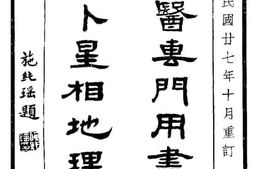 民國廿七年十月重訂
醫専門用書
卜星相地理
施純瑶題